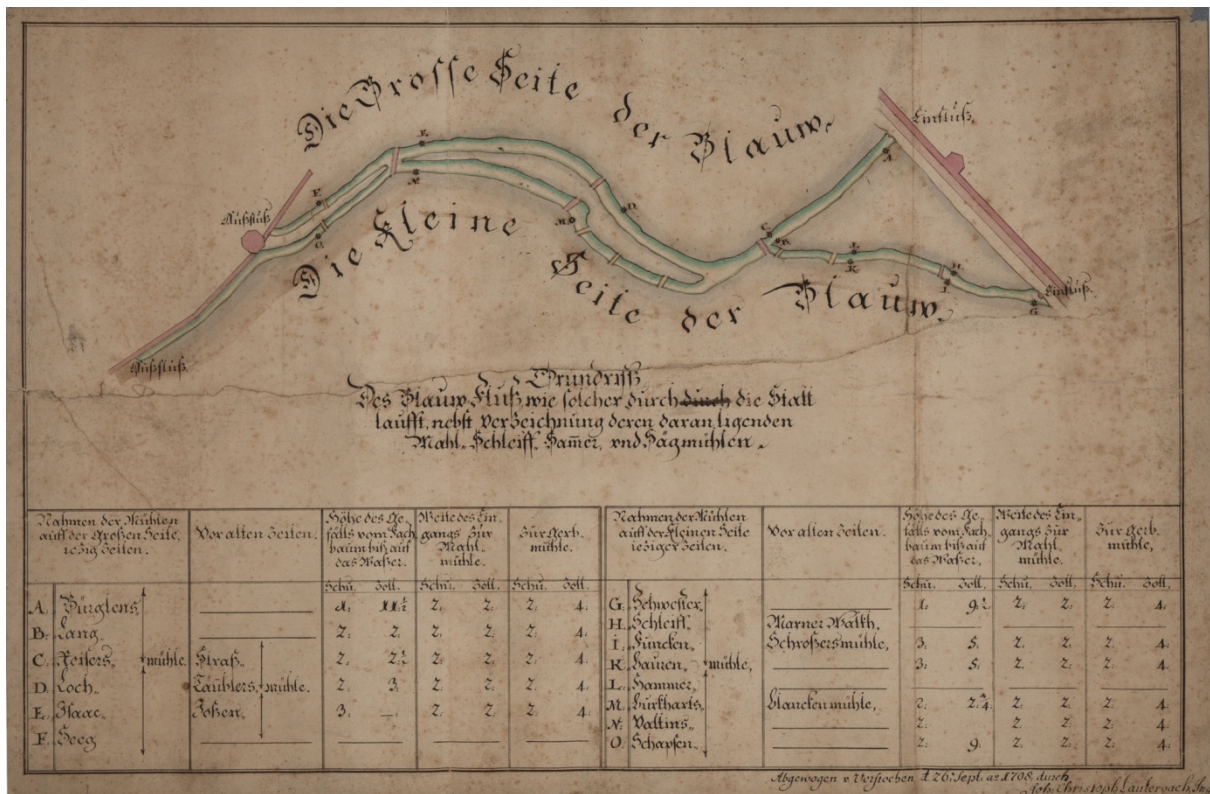 Die Grosse Seite der Blauw.
Einfluß.
A
E.
N.
D.
F.
Außfluß
O.
M.
C.
B.
L.
K
H.
I.
Einfluß.
G
Die Kleine Seite der Blauw.
Außfluß
Grundriß
Des Blauw Fluß, wie solcher durch durch die Statt
laufft, nebst Verzeichnung deren daran ligenden
Mahl- Schleiff, Ham̄er, vnd Sägmühlen.
Nahmen der Mühlen auff der Großen Seite, ieziger Zeiten. Vor alten Zeiten. Höhe des Gefälls vom Fachbaum biß auf das Waßer. Weite des Eingangs zur Mahlmühle. Zur Gerbmühle.
Schu. Zoll. Schu. Zoll. Schu. Zoll.
A. Bürglens 1. 11½ 2. 2. 2. 4.
B. Lang 2. 2. 2. 2. 2. 4.
C. mühle. Straß 2. 2½ 2. 2. 2. 4.
D. Loch Täublers mühle. 2. 3. 2. 2. 2. 4.
E. Isaac 3. — 2. 2. 2. 4.
F. Seeg
Nahmen der Mühlen auff der Kleinen Seite ieziger Zeiten. Vor alten Zeiten. Höhe des Gefälls vom Fachbaum biß auf das Waßer, Weite des Eingangs zur Mahlmühle. Zur Gerbmühle,
Schu. Zoll, Schu. Zoll, Schu. Zoll.
G. Schwester 1. 9½ 2. 2. 2. 4.
H. Schleiff Marner Walkh.
I. Funcken Schroßersmühle, 3. 5. 2. 2. 2. 4.
K. Bauren mühle, 3. 5. 2. 2. 2. 4.
L. Hammer
M. Burkharts Blancken mühle, 2. 2¾ 2. 2. 2. 4.
N. Valtins 2. 2. 2. 2. 4.
O. Schapfen 2. 9. 2. 2. 2. 4.
Abgewogen v. Versiochen d. 26. Sept. ao. 1708. durch
Joh. Christoph Lauterbach